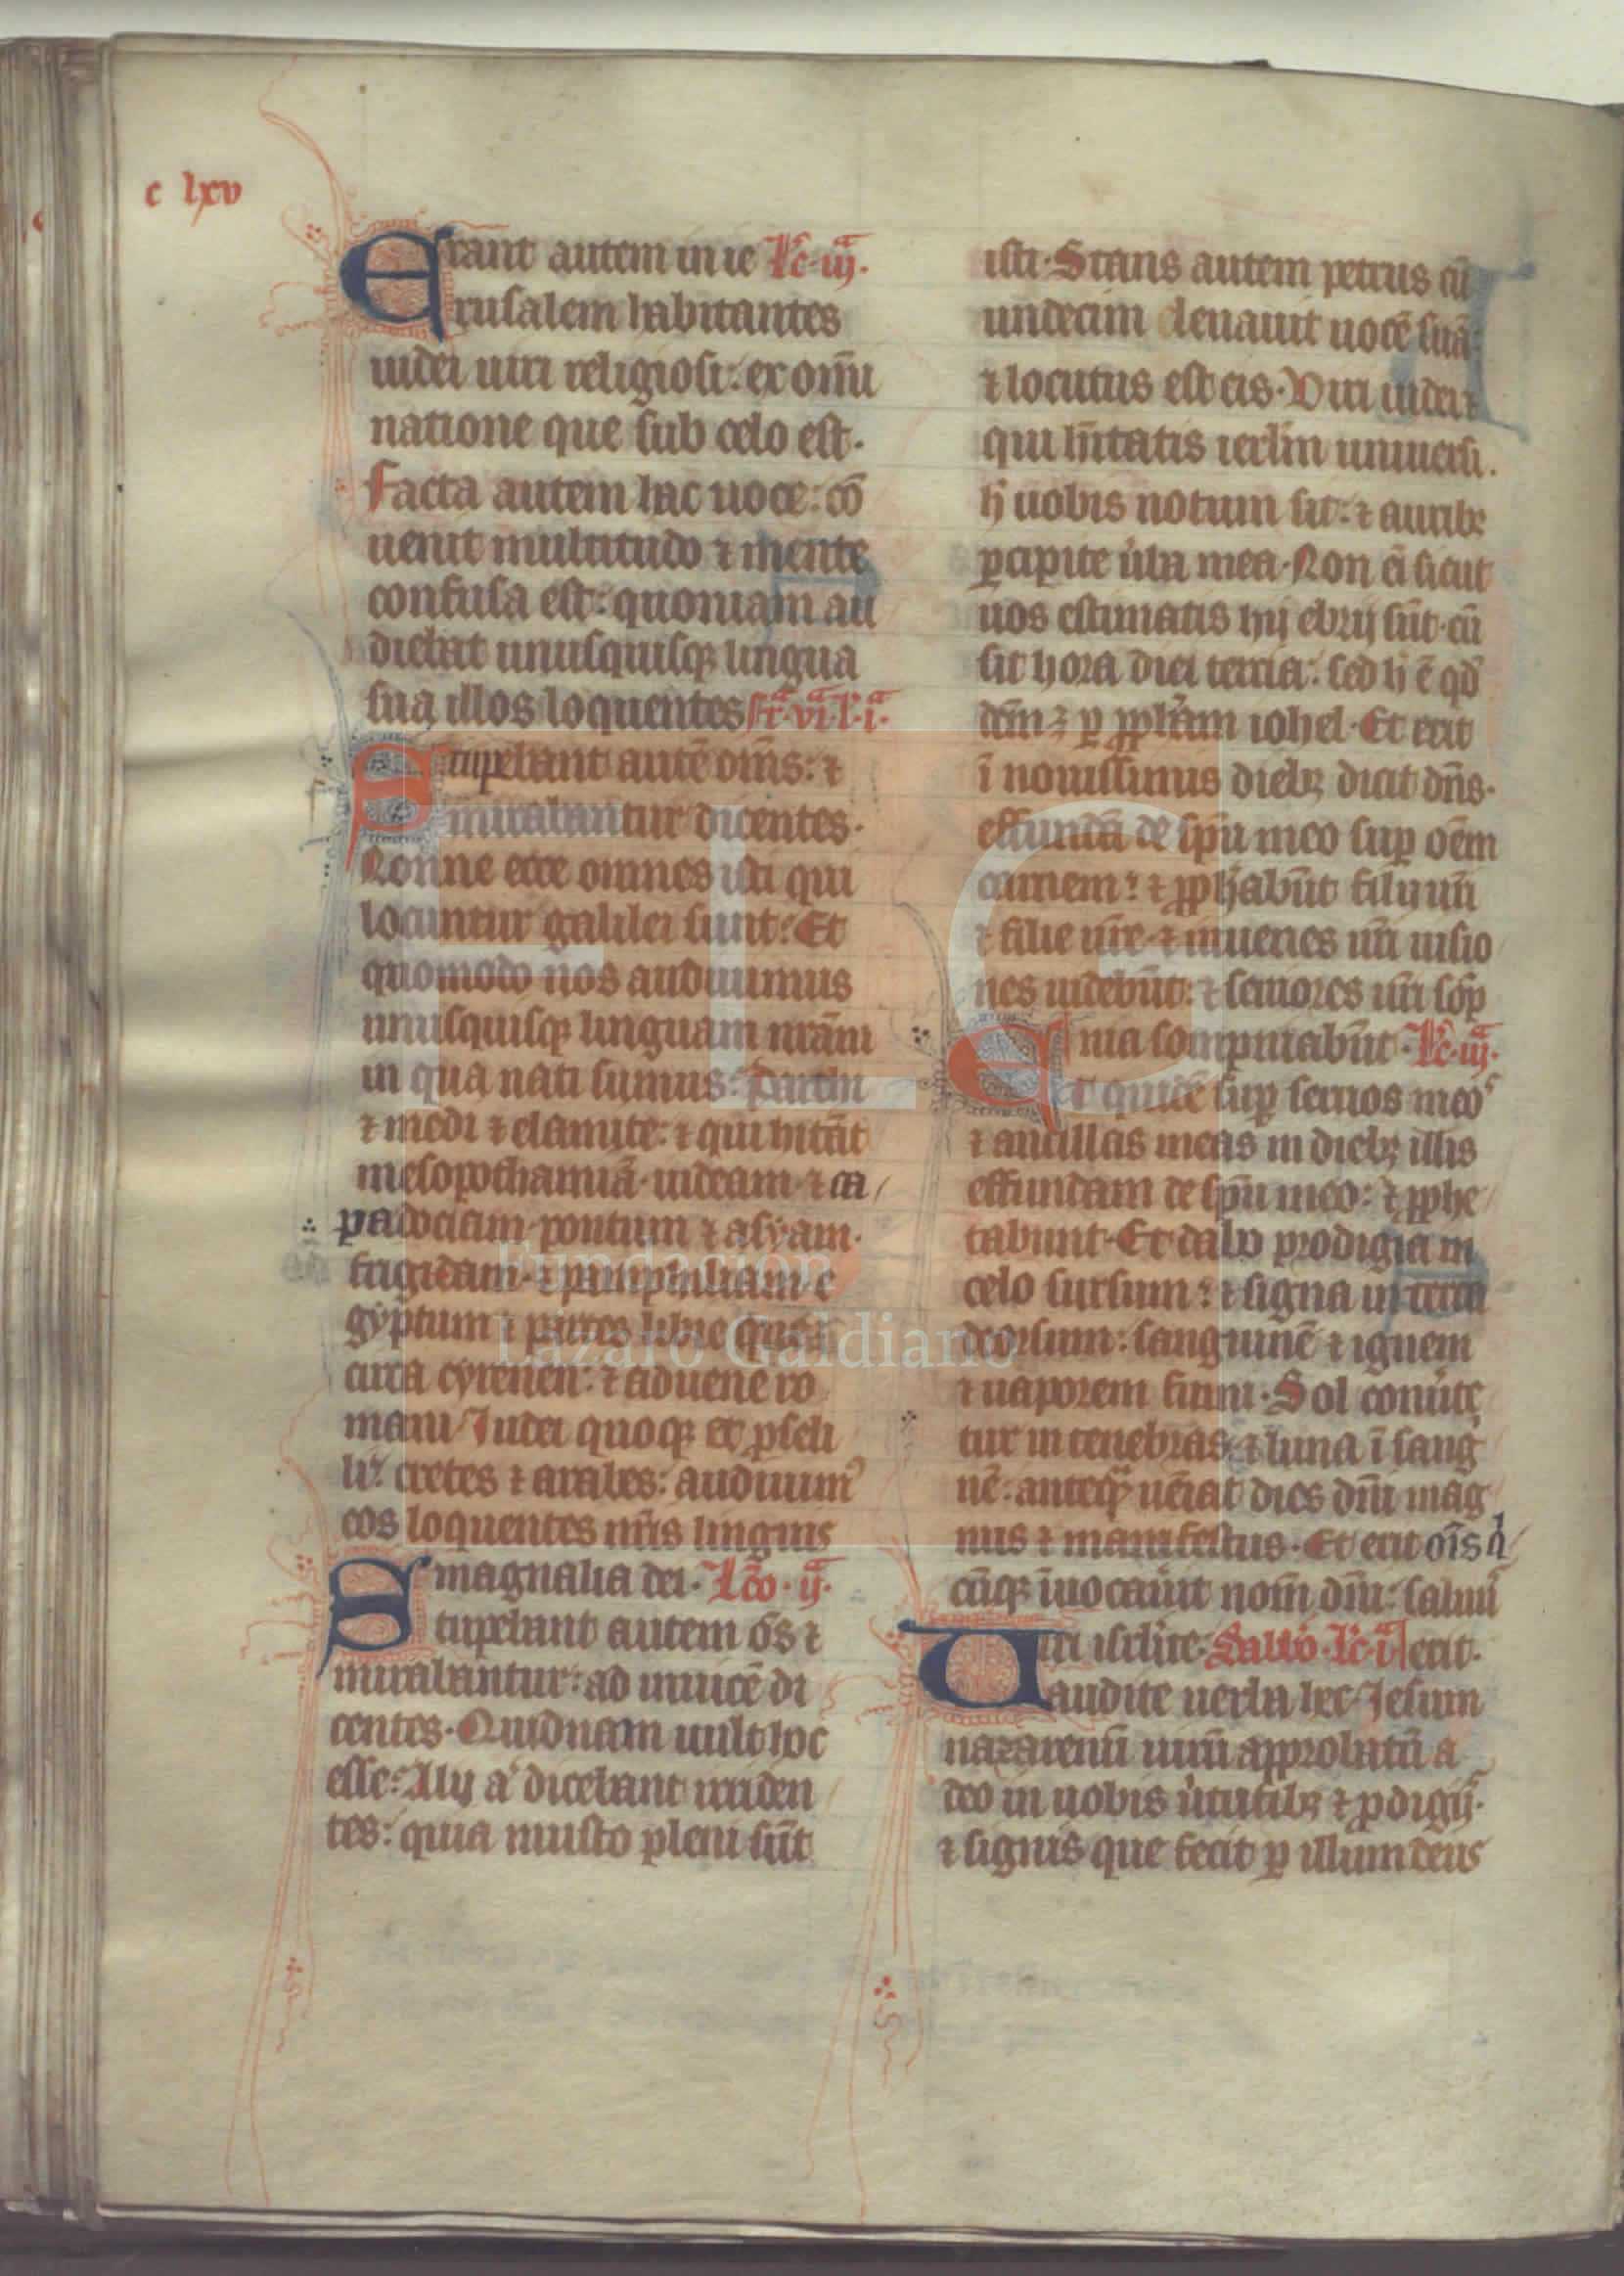 c lxv
Erant autem in ie lc̄·iij·
rusalem habitantes
iudei uiri religiosi: ex om̄i
natione que sub celo est·
Facta autem hac uoce: cō
uenit multitudo ⁊ mente
confusa est: quoniam au
diebat unusquisqꝫ lingua
sua illos loquentes fr̄·vi·l·i·
Stupebant autē om̄s: ⁊
mirabantur dicentes·
Nonne ecce omnes isti qui
locuntur galilei sunt: Et
quomodo nos audiuimus
unusquisqꝫ linguam nr̄am
in qua nati sumus: Parthi
⁊ medi ⁊ elamite: ⁊ qui hītāt
mesopothamiā· iudeam· ⁊ ca
padociam· pontum ⁊ asyam·
frigidam· ⁊ pamphiliam· e
gyptum ⁊ partes libie que
circa cyrenen: ⁊ aduene ro
mani Iudei quoqꝫ ex ꝓseli
li: cretes ⁊ arabes: audiuim᷒
eos loquentes nr̄is linguis
magnalia dei· lc̄o·ij·
Stupebant autem ōs ⁊
mirabantur: ad inuicē di
centes· Quidnam uult hoc
esse: Alij a̾ dicebant irriden
tes: quia musto pleni sūt
isti· Stans autem petrus cū
undecim eleuauit uocē suā:
⁊ locutus est eis· Viri iudei ⁊
qui hītatis ierl̄m uniuersi·
h̄ uobis notum sit: ⁊ auribꝫ
ꝑcipite u̾ba mea· Non ēi sicut
uos estimatis hij ebrij sūt· cū
sit hora diei tercia: sed h̄ ē qd̄
dc̄m ꝫ ꝑ ꝓph̄am iohel· Et erit
ī nouissimis diebꝫ dicit dn̄s·
effundā de sp̄u meo suꝑ oēm
carnem: ⁊ ꝓph̄abūt filij ur̄i
⁊ filie ur̄e· ⁊ iuuenes ur̄i uisio
nes uidebūt: ⁊ seniores ur̄i sōp
nia sompniabūt· lc̄·iij·
Et quidē suꝑ seruos meos
⁊ ancillas meas in diebꝫ illis
effundam de sp̄u meo: ⁊ ꝓphe
tabunt· Et dabo prodigia in
celo sursum: ⁊ signa in terra
deorsum: sanguinē ⁊ ignem
⁊ uaporem fumi· Sol conu̾te
tur in tenebras, ⁊ luna ī sang
nē: anteq̄ ueīat dies dn̄i mag
nus ⁊ manifestus· Et erit oīs q
cūqꝫ īuocau̾it nom̄ dn̄i: saluu᷒
erit· Sabb̄o·lc̄·i·
Uiri isrl̄ite·
audite uerba hec Iesum
nazarenū uirū approbatū a
deo in uobis u̾tutibꝫ ⁊ ꝓdigijs·
⁊ signis que fecit ꝑ illum deus
FLG
Fundación
Lázaro Galdiano